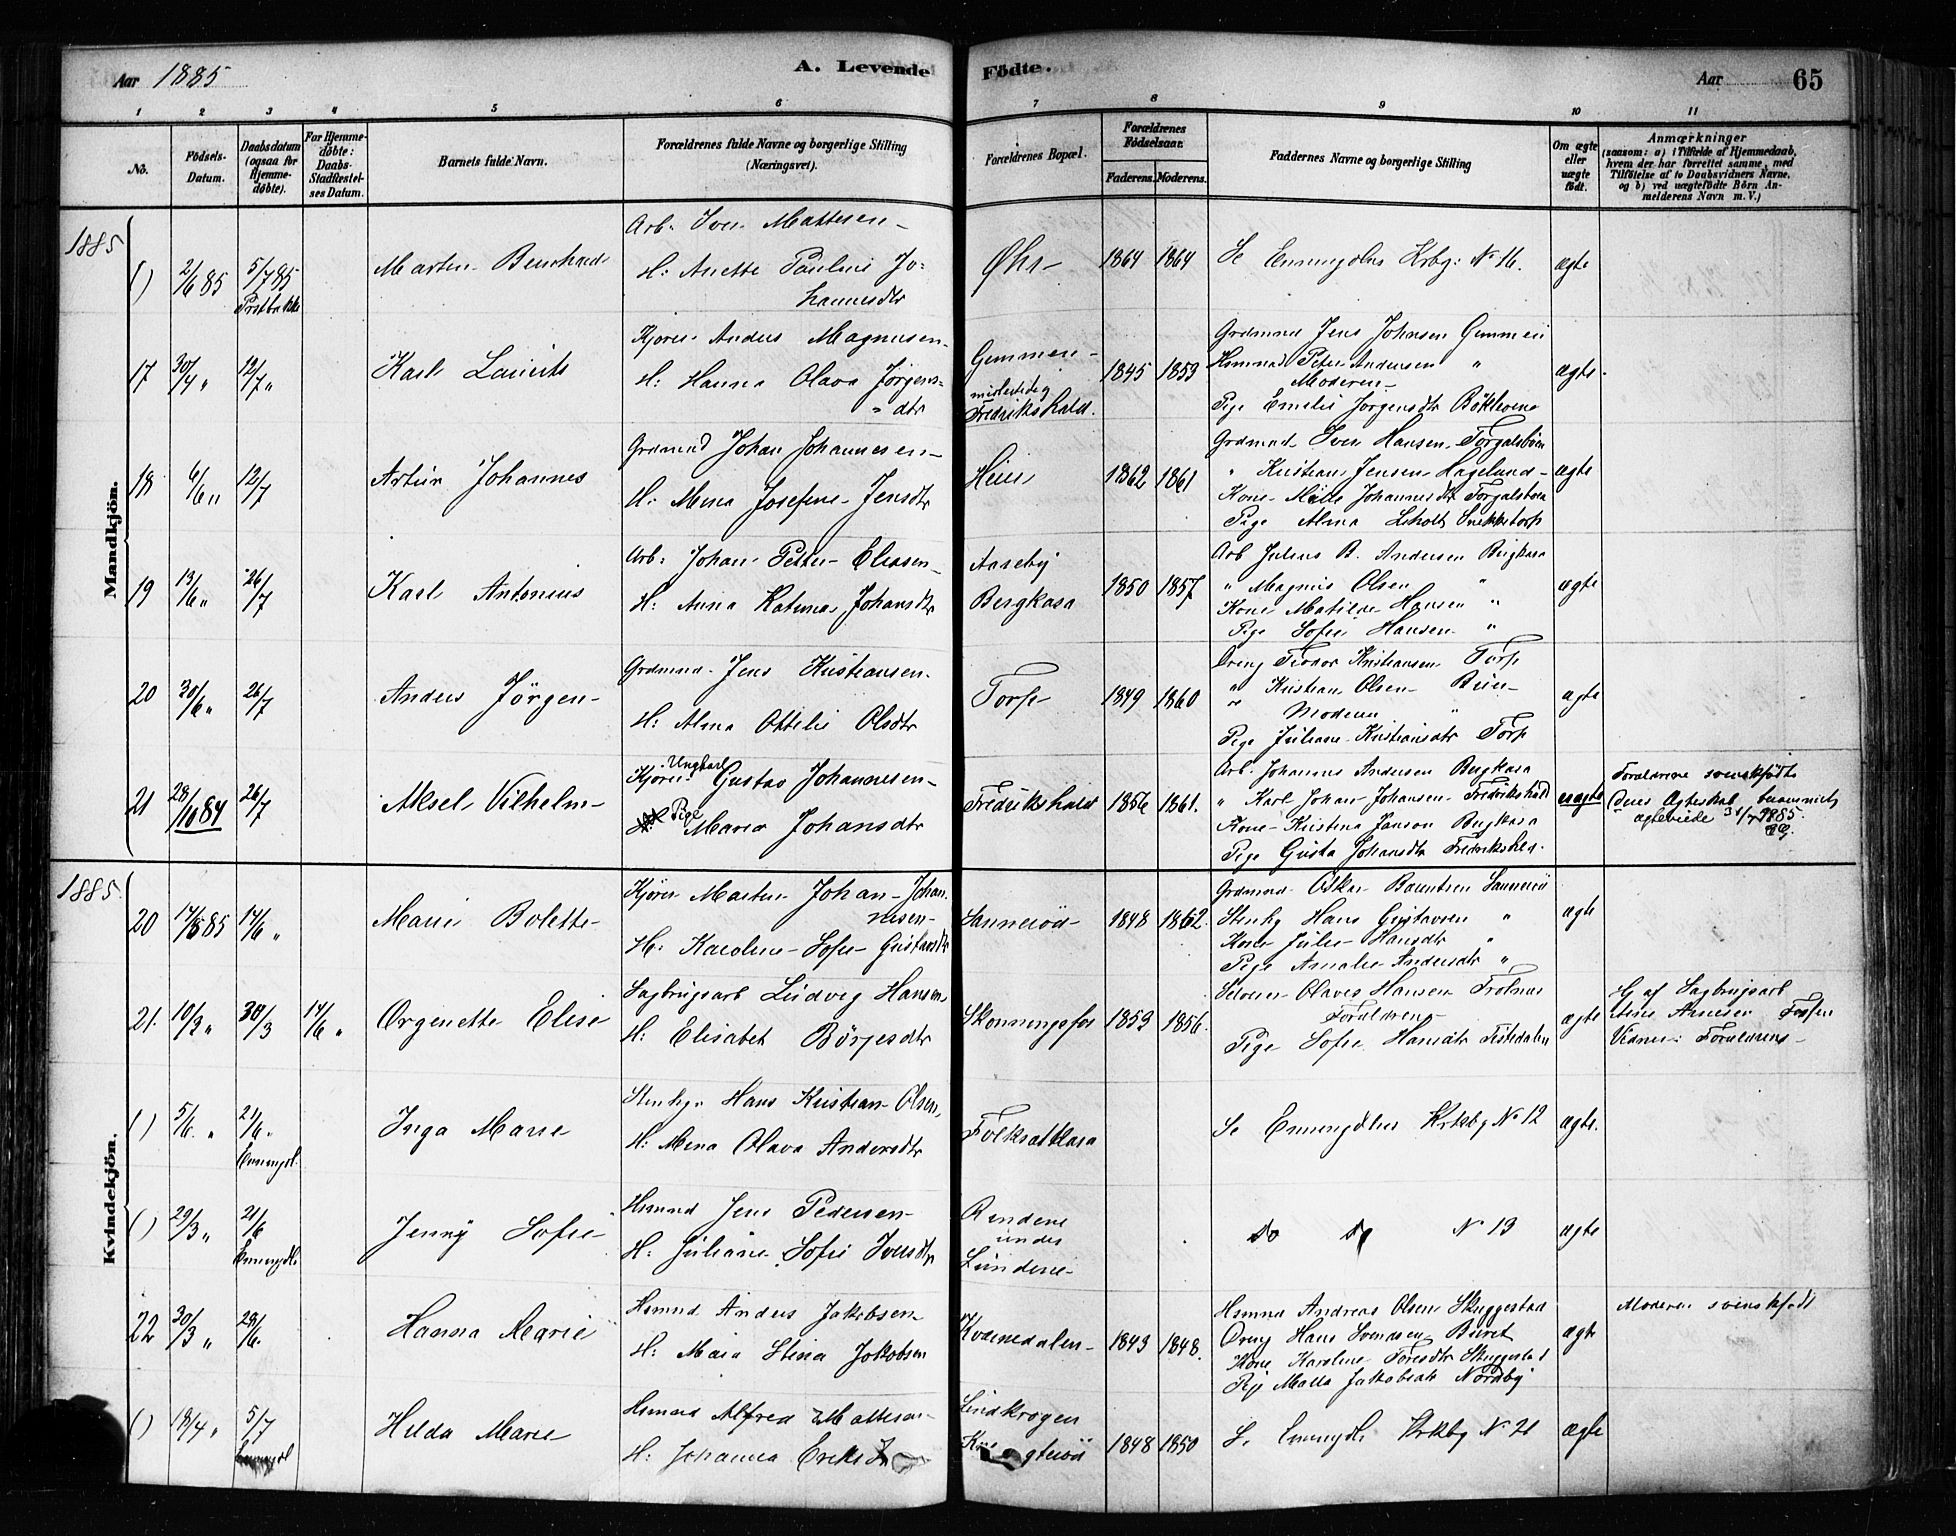 Aar 1885
A. Levende Fødte.
Aar
65
1 2 3 4 5 6 7 8 9 10 11
No.
Födsels-Datum.
Daabsdatum (ogsaa for Hjemme-döbte).
For Hjemme-døbte: Daabs-Stadfæstel-ses Datum.
Barnets fulde Navn.
Forældrenes fulde Navne og borgerlige Stilling (Næringsvei).
Forældrenes Bopæl.
Forældrenes Födselsaar.
Faderens. Moderens.
Faddernes Navne og borgerlige Stilling
Om ægte eller uægte födt.
Anmærkninger
(saasom: a) i Tilfælde af Hjemmedaab,
hvem der har forrettet samme, med
Tilföielse af to Daabsvidners Navne,
og b) ved uægtefödte Börn An-
melderens Navn m. V.)
Mandkjön.
1885
() 2/6 85 5/7 85
Marten Bernhard
Arb: Iver Mattesen
H: Anette Pauline Jo-
hannesdtr
Øhr 1864 1864
Se Enningdlns Krbg: No 16. ægte
17 30/4 " 12/7 "
Karl Laurits
Kjører Anders Magnusen
H: Hanna Olava Jörgens-
dtr
Gummen
midlertidig
Fredrikshald.
1845 1859
Grdmand Jens Johnsen Gummen
Hsmnd Peter Andersen "
Moderen
Pige Emilie Jörgensdtr
ægte
18 6/6 " 12/7
Artur Johannes
Grdmand Johan Johannesen
H: Mina Josefine Jensdtr
Heier 1862 1861
Grdmnd Iver Hansen
" Kristian Jensen Hagelund
Kone Johannesdtr
Pige Alma
ægte
19 13/6 " 26/7
Karl Antonius
Arb: Johan Petter Eliasen
H: Anna Katrina Johansdtr
Aaseby
Bergkasa
1850 1857
Arb Julius B. Andersen Bergkasa
" Magnus Olsen "
Kone Matilde Hansen "
Pige Sofie Hansen "
ægte
20 30/6 " 26/7
Anders Jörgen
Grdmnd Jens Kristiansen
H: Alma Ottilie Olsdtr
Torp 1849 1860
Dreng Teodor Kristiansen Torp
" Kristian Olsen
" Moderen "
Pige Juliane Kristiansdtr Torp
ægte
21 28/10 84 26/7
Aksel Vilhelm
Ungkarl
Kjører Gustav Johannesen
Pige Maria Johansdtr
Fredrikshald 1856 1861.
Arb. Johannes Andersen Bergkasa
" Karl Johan Johansen Fredrikshald
Kone Kristina Janson Bergkasa
Pige Gusta Johansdtr Fredrikshld.
uægte
Forældrene svenskfødte
Kvindekjön.
1885.
20 14/6 "
Marie Bolette
Kjører Marten Johan Johan-
nesen
H: Karoline Sofie Gustavsdtr
Sannerød 1848 1862.
Grdmnd Oskar Berntsen Sannerød
Stenhg Hans Gustavsen "
Kone Julie Hansdtr "
Pige Amalie Andersdtr "
ægte
21. 10/3 " 30/3 14/6 "
Orgenette Elise
Sagbrugsarb Ludvig Hansen
H: Elisabet Börjesdtr
Skonningsfos 1859 1856.
Olaves Hansen
Forældrene
Pige Sofie Hansdtr Tistedalen
ægte
af Sagbrugsarb
Arnesen
Vidner: Forældrene
() 5/6. " 21/6.
Inga Marie
Stenhg. Hans Kristian Olsen
H: Mina Olava Andersdtr
Folkaatkasa
Se Enningdlns Krkbg No 12 ægte.
() 29/3 " 21/6
Enningdl.
Jenny Sofie
Hsmnd Jens Pedersen
H: Juliane Sofie Iversdtr
under
Lundene
do do No 13 ægte
22 30/3 " 28/6.
Hanna Marie
Hsmnd Anders Jakobsen
H: Maia Stina Jakobsen
Kvernedalen 1843 1848.
Hsmnd Andreas Olsen Skuggestad
Dreng Hans Svendsen
Kone Karoline Skuggestad
Pige Jakobsdtr Nordby
ægte
Moderen svenskfødt
() 18/4 " 5/7
Hilda Marie
Hsmand Alfred Mattesen
H: Johanna
Lindkrogen
1848 1850
Se Enningdl. Krkbg No 21 ægte